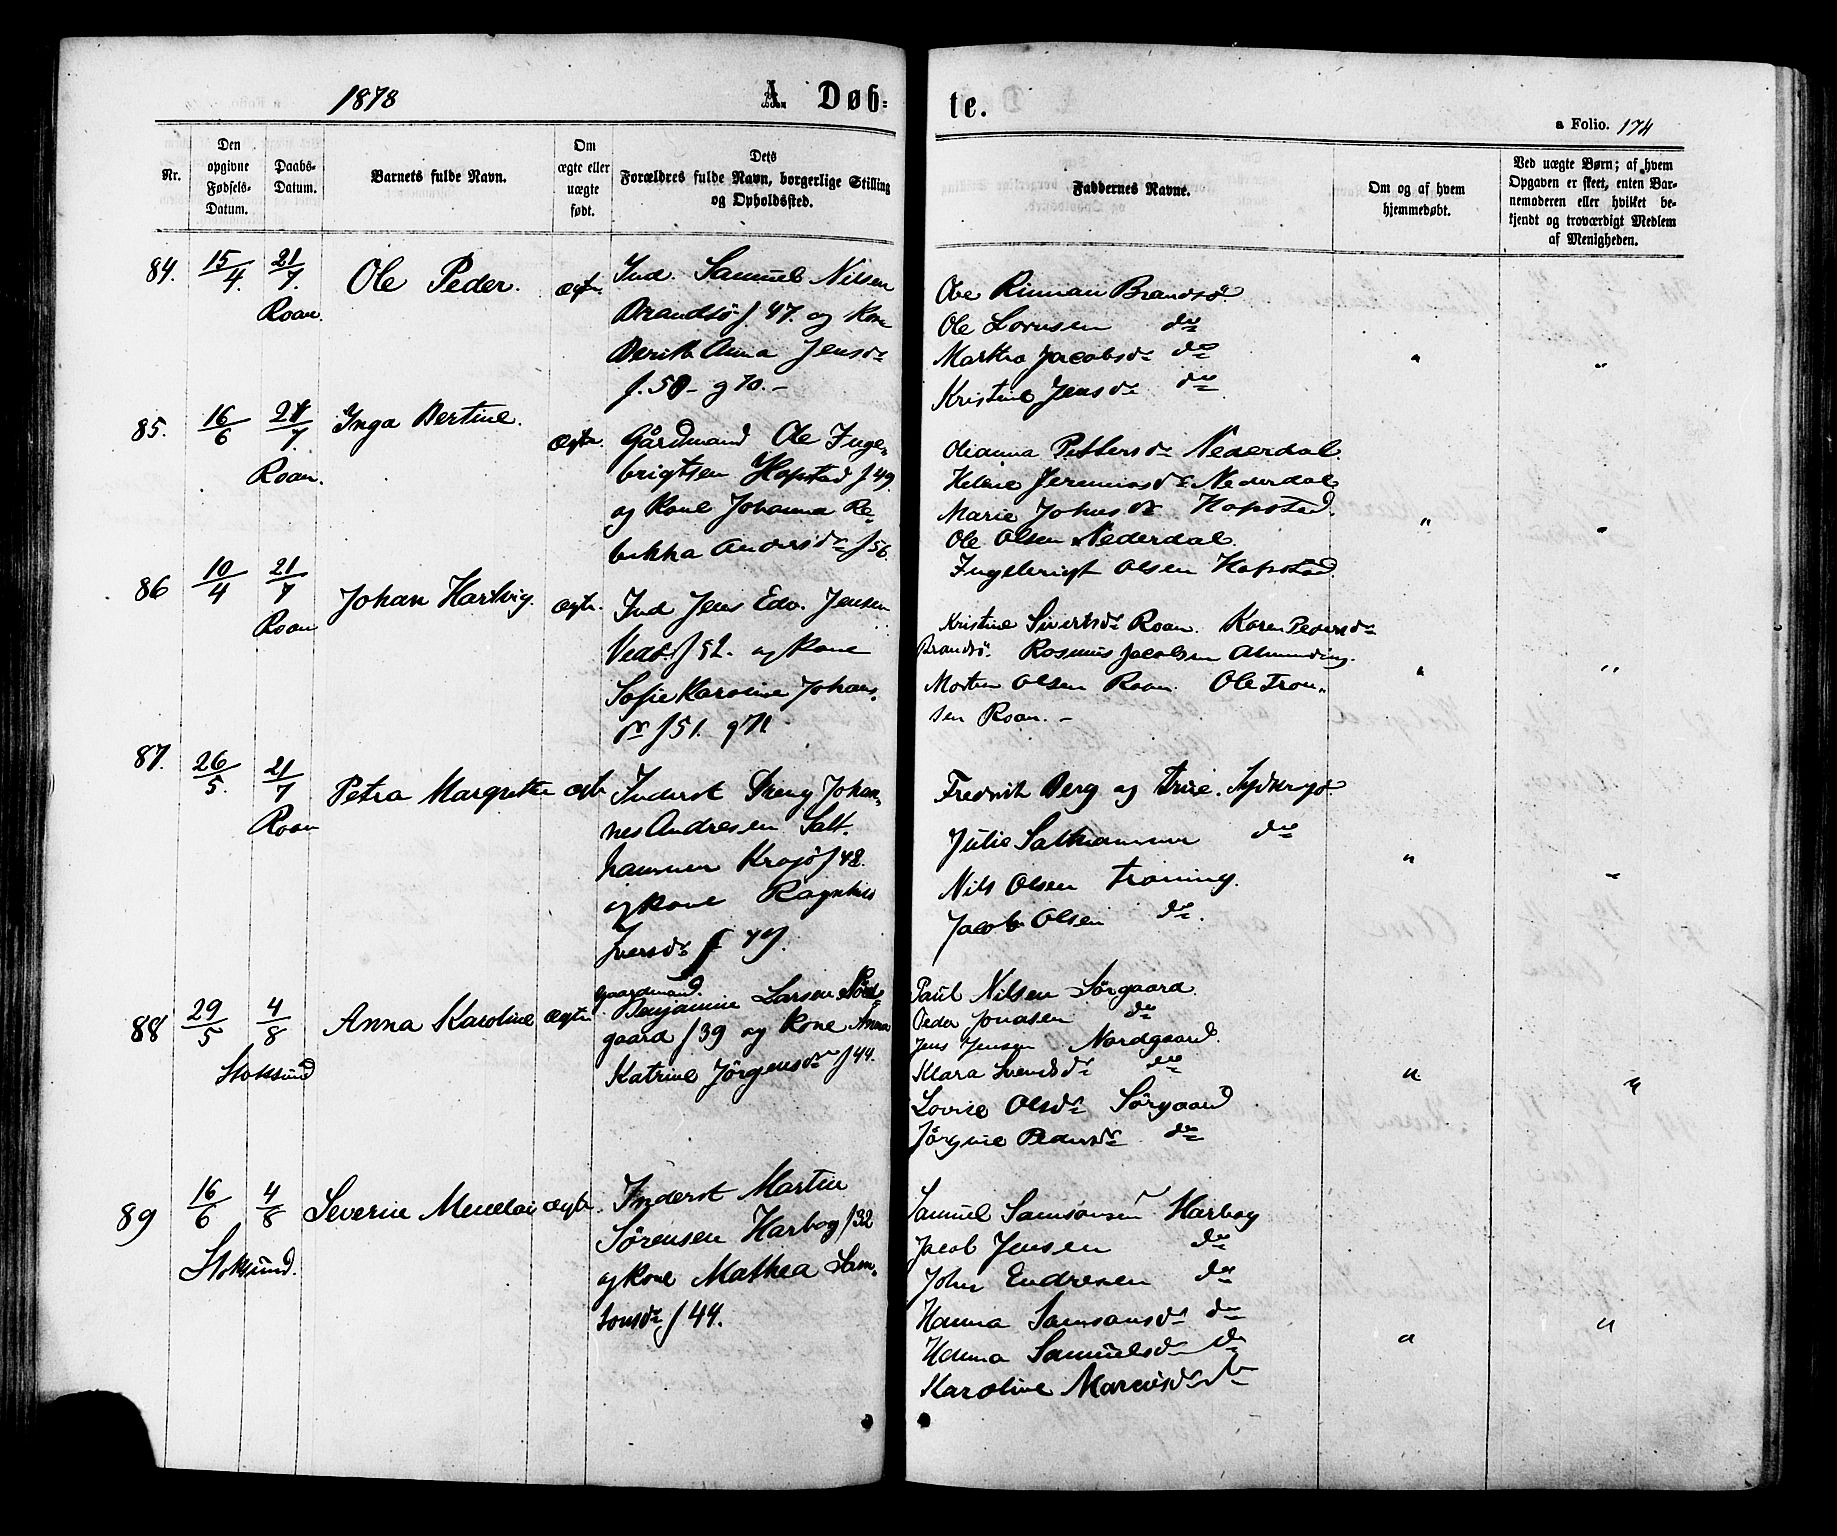 1878
A. Døb-
te.
a Folio. 174
Nr.
Den opgivne Fødsels-Datum.
Daabs-Datum.
Barnets fulde Navn.
Om ægte eller uægte født.
Dets Forældres fulde Navn, borgerlige Stilling og Opholdssted.
Faddernes Navne.
Om og af hvem hjemmedøbt.
Ved uægte Børn; af hvem Opgaven er skeet, enten Barnemoderen eller hvilket bekjendt og troværdigt Medlem af Menigheden.
84. 15/4. 21/7. Roan.
Ole Peder.
ægte.
Ind. Samuel Nilsen
Brandsø f. 47. og Kone
Berith Anna Jensdr
f. 50 - g 70. -
Ole Rinnan Brandsø
Ole Lornsen do
Martha Jacobsdr do
Kristine Jensdr do
" "
85. 16/6 21/7. Roan.
Inga Bertine.
ægte.
Gårdmand Ole Inge-
brigtsen Hopstad f 49.
og Kone Johanna Re-
bekka Andersdr f 56.
Olianna Pettersdr Nederdal
Helene Jeremiasdr Nederdal
Marie Johnsdr Hopstad.
Ole Olsen Nederdal.
Ingebrigt Olsen Hopstad.
" "
86 10/4 21/7 Roan
Johan Hartvig.
ægte.
Ind Jens Edv. Jensen
f 52. og Kone
Sofie Karoline Johans-
dr f 51. g 71
Kristine Sivertsdr Roan. Karen Pedersdr
Brandsø. Rasmus Jacobsen Almending.
Morten Olsen Roan. Ole Tron-
sen Roan. -
" "
87. 26/5. 21/7 Roan
Petra Margrethe
ægte
Inderst Dreng Johan-
nes Andresen Salt-
hammer Krajø f 48.
og Kone Ragnhild
Iversdr f 49.
Fredrik Berg og Trine. Sydkrajø.
Julie Salthammer do
Nils Olsen Troning.
Jacob Olsen do.
" "
88 29/5 4/8 Stoksund
Anna Karoline
ægte
Gaardmand.
Benjamine Larsen Nord-
gaard f 39 og Kone Anna
Katrine Jørgensdr f 44.
Paul Nilsen Sørgaard.
Peder Jonasen do
Jens Jensen Nordgaard.
Klara Svendsdr do
Lovise Olsdr Sørgaard
Jørgine Pedersdr do
" "
89 16/6 4/8 Stoksund.
Severine
ægte.
Inderst Martin
Sørensen Harbog f 32
og Kone Mathea Sam-
sonsdr f 44.
Samuel Samsonsen Harbog
Jacob Jensen do
John Endresen do
Hanna Samsonsdr do
Hanna Samuelsdr do
Karoline do
" "